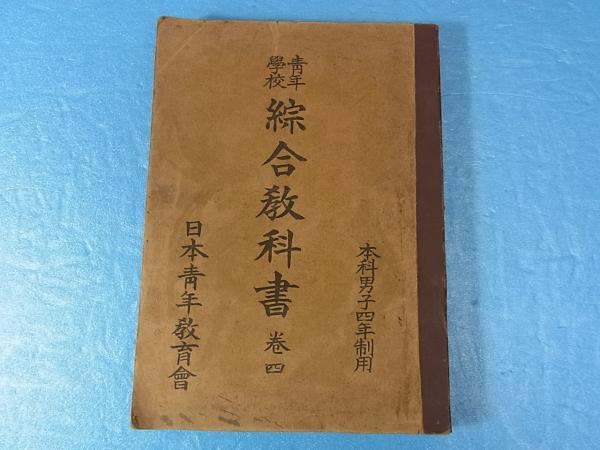 本科男子四年制用
青年學校 綜合教科書 卷四
日本青年教育會